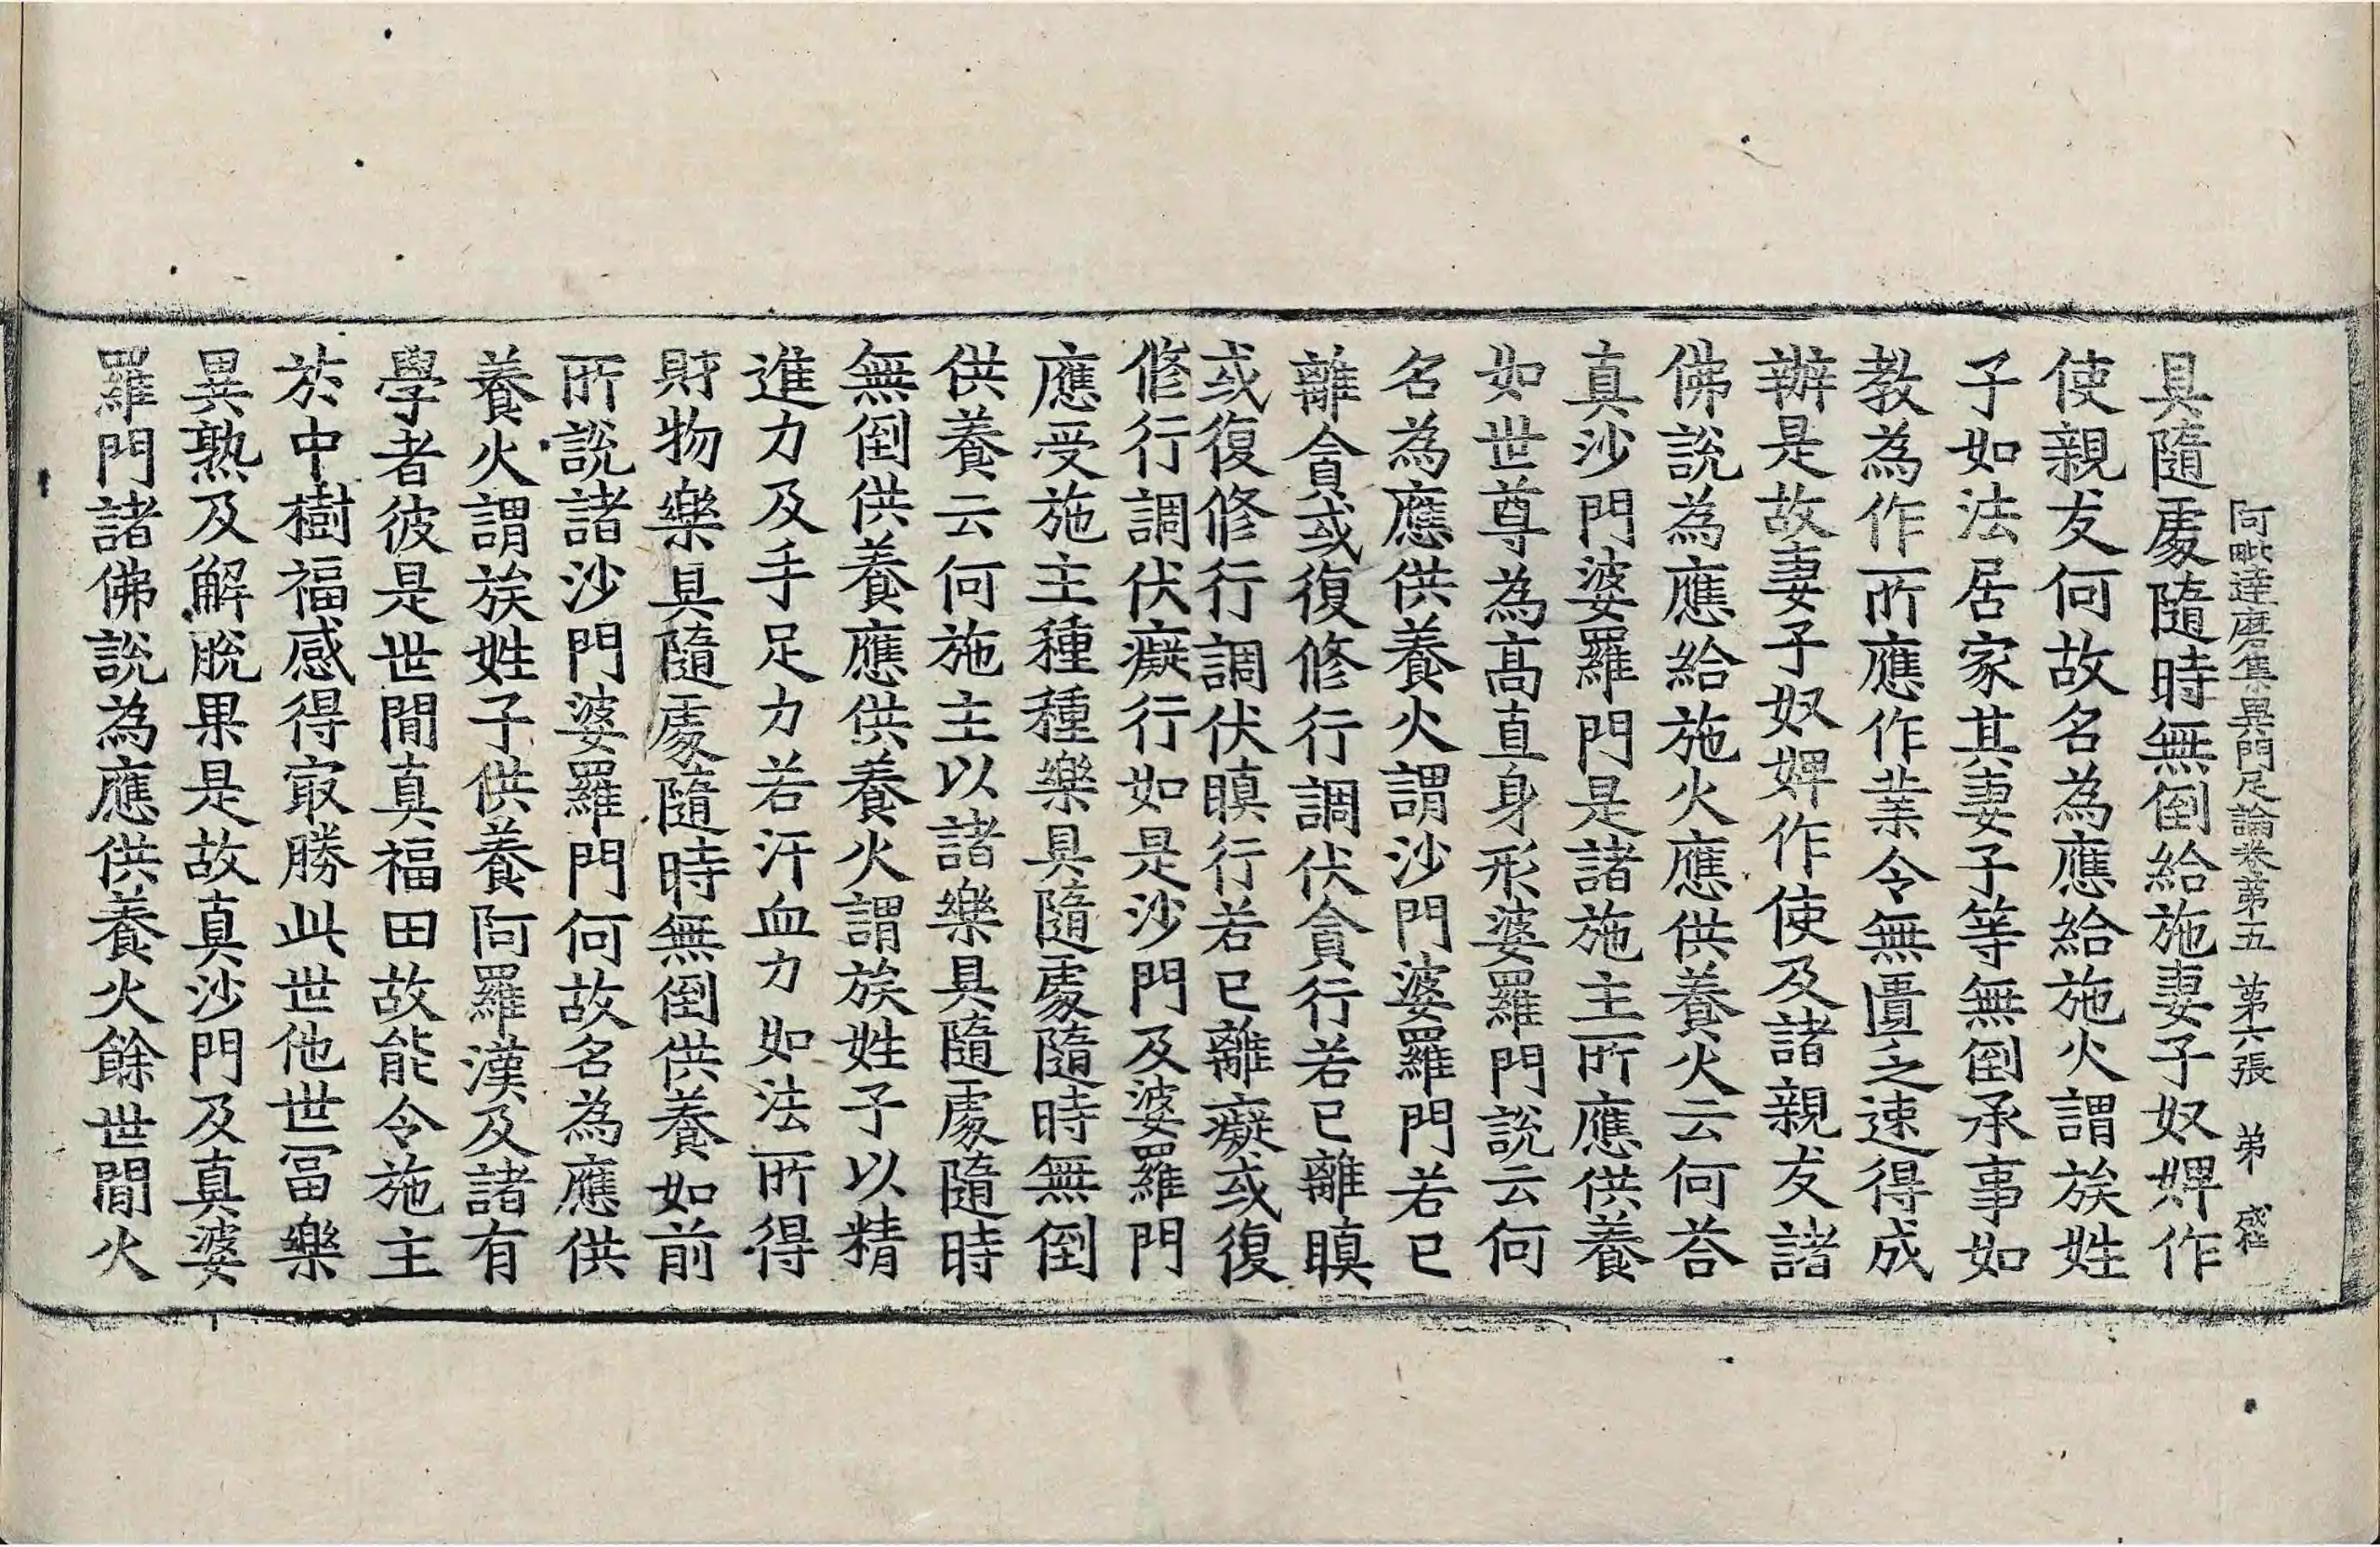 阿毗達磨集異門足論卷第五 第六張 弟 盛
具隨處隨時無倒給施妻子奴婢作
使親友何故名為應給施火謂族姓
子如法居家其妻子等無倒承事如
教為作所應作業令無匱之速得成
辦是故妻子奴婢作使及諸親友諸
佛說為應給施火應供養火云何荅
真沙門婆羅門是諸施主所應供養
如世尊為高直身形婆羅門說云何
名為應供養火謂沙門婆羅門若已
離貪或復修行調伏貪行若已離瞋
或復修行調伏瞋行若已離癡或復
修行調伏癡行如是沙門及婆羅門
應受施主種種樂具隨處隨時無倒
供養云何施主以諸樂具隨處隨時
無倒供養應供養火謂族姓子以精
進力及手足力若汗血力如法所得
財物樂具隨處隨時無倒供養如前
所說諸沙門婆羅門何故名為應供
養火謂族姓子供養阿羅漢及諸有
學者彼是世間真福田故能令施主
於中樹福感得㝡勝此世他世冨樂
異熟及解脫果是故真沙門及真婆
羅門諸佛說為應供養火餘世間火